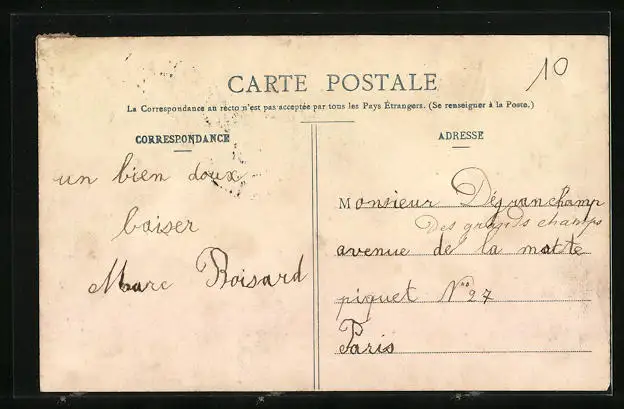 CARTE POSTALE
10
La Correspondance au recto n'est pas acceptée par tous les Pays Étrangers. (Se renseigner à la Poste.)
CORRESPONDANCE
un bien doux
baiser
Marc Boisard
ADRESSE
Monsieur Dégranchamp
Des grands champs
avenue de la motte
piquet N° 27
Paris